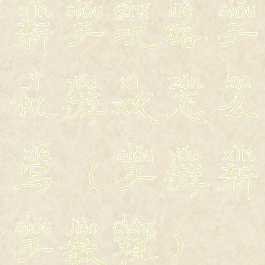 xīn shǒu gōng lüè shǒu
新手攻略手
jī yóu xì zěn me
机游戏怎么
xiě shǒu yóu xīn
写（手游新
shǒu jiào chéng
手教程）